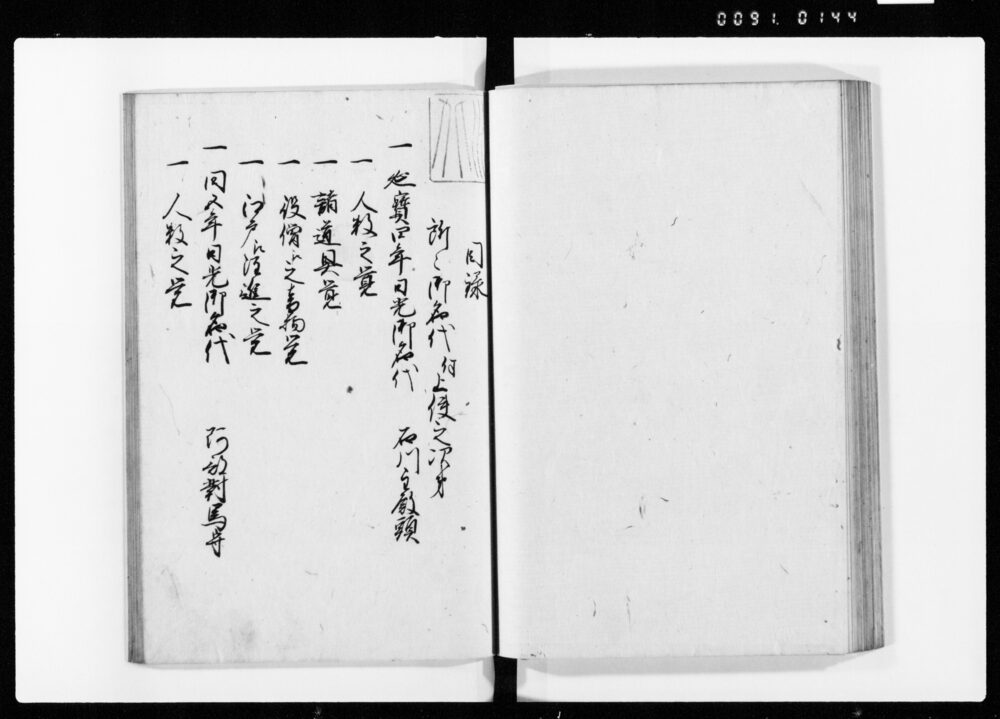 0091.0144
目録
所々御名代付上使之次第
一 延寶四年日光御名代 石川主殿頭
一 人数之覚
一 諸道具覚
一 役僧江之書物覚
一 江戸江注進之覚
一 同五年日光御名代 阿部對馬守
一 人数之覚